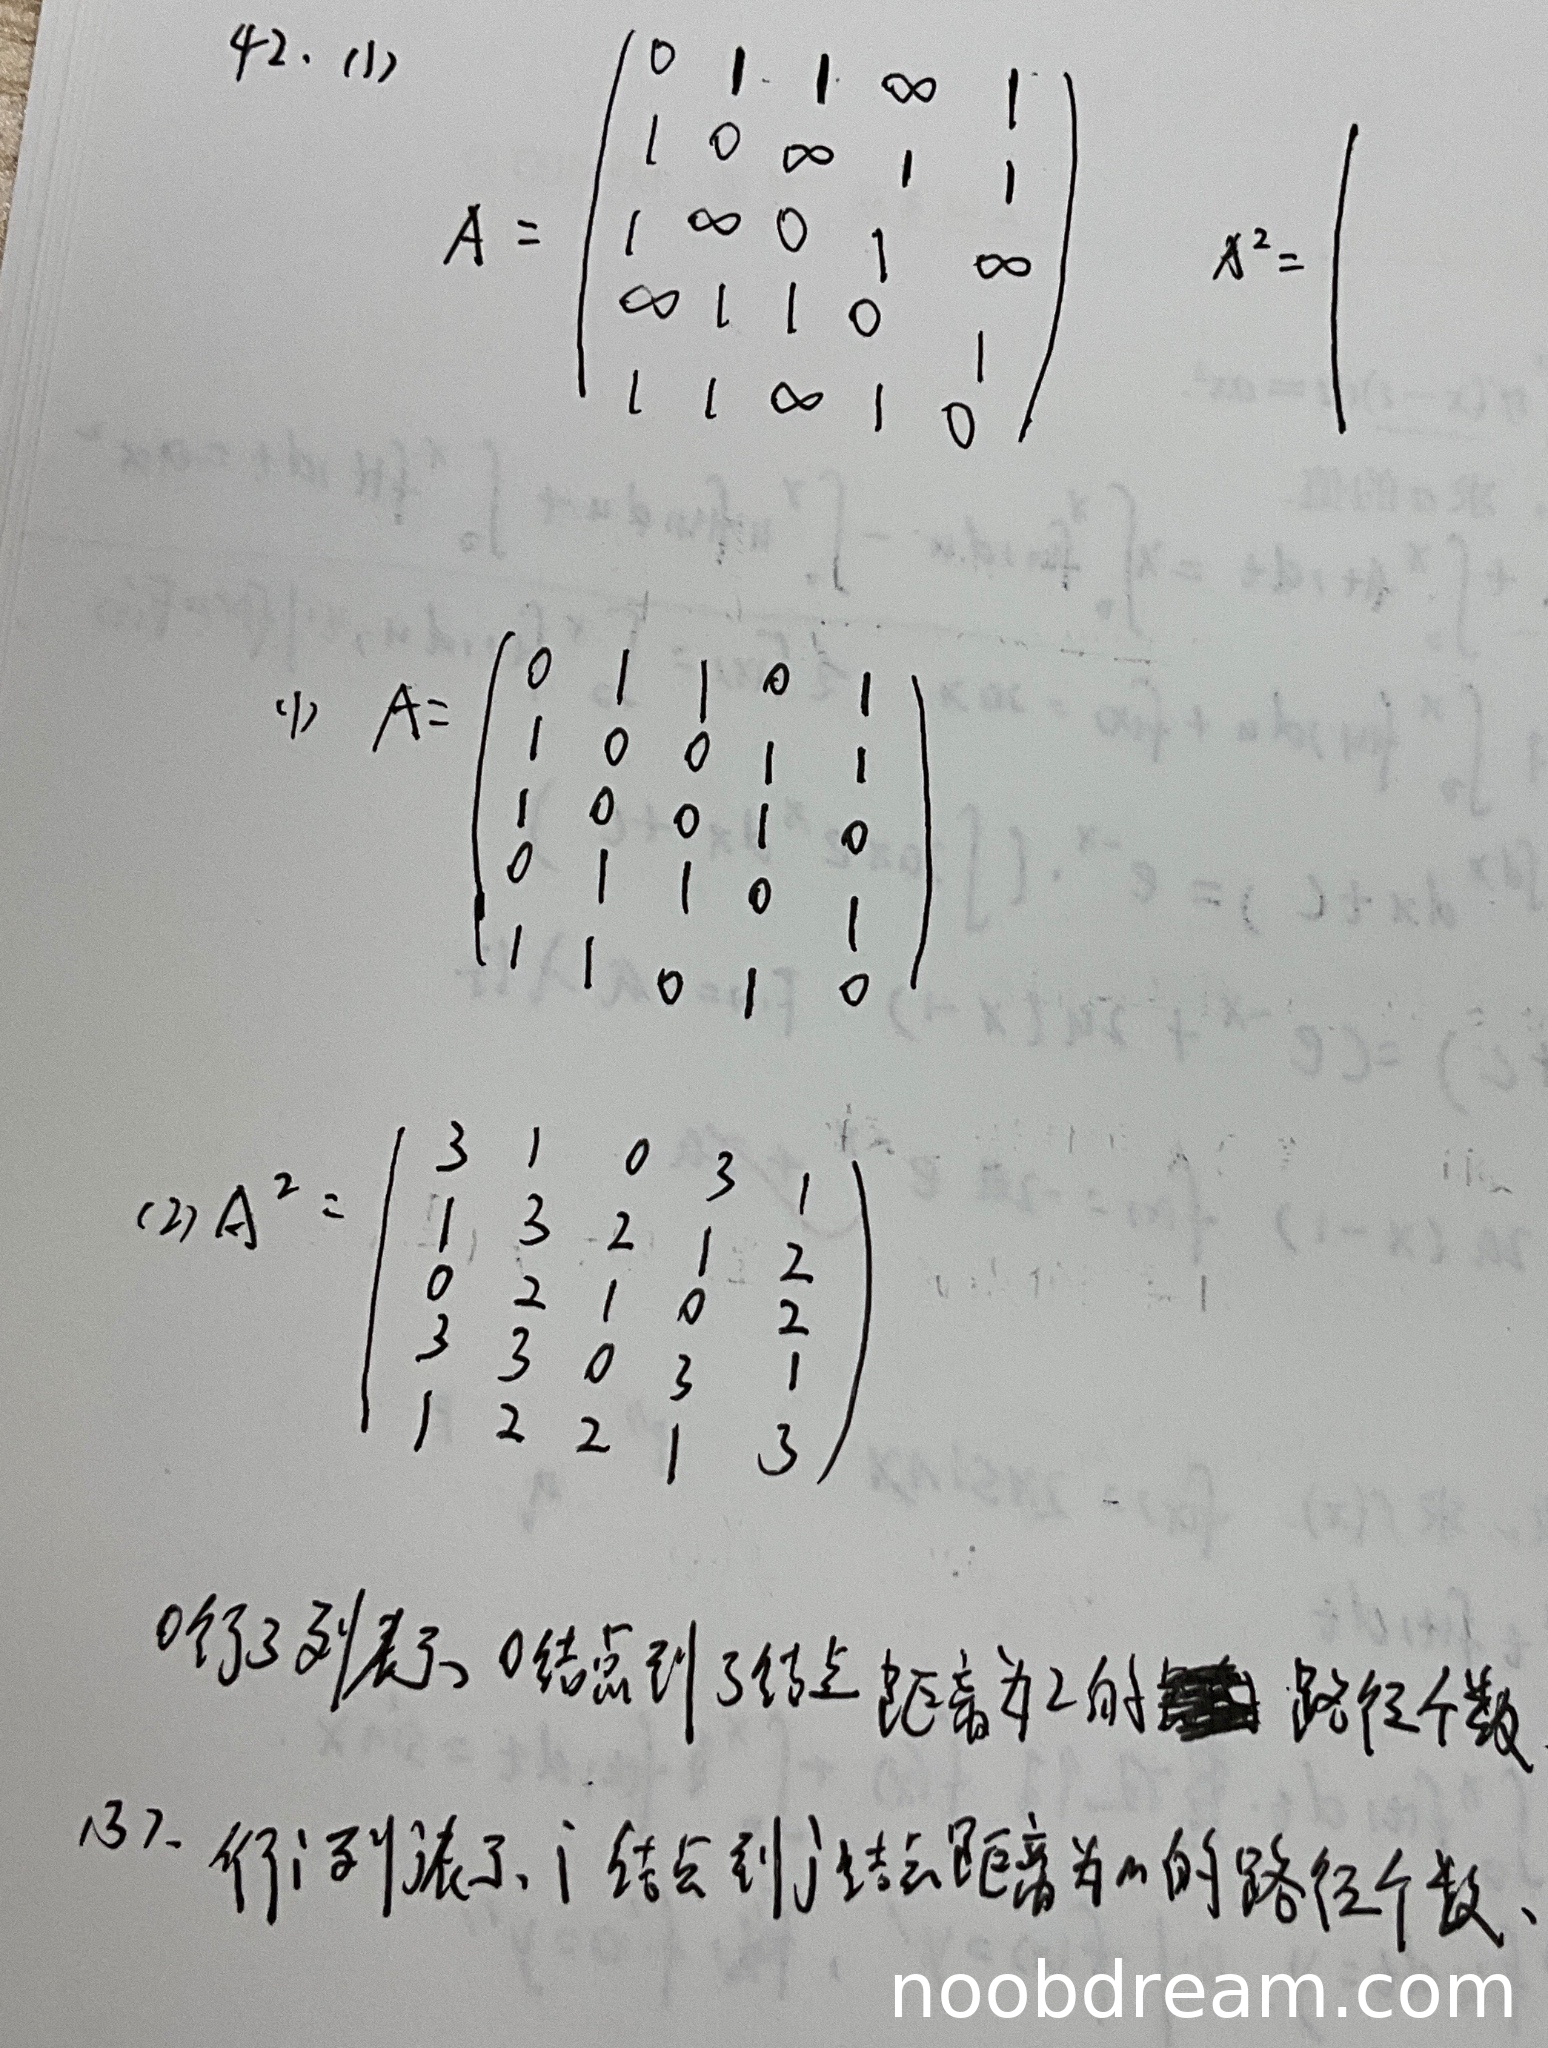 42. (1)
A = ( 0 1 1 ∞ 1
1 0 ∞ 1 1
1 ∞ 0 1 ∞
∞ 1 1 0 1
1 1 ∞ 1 0 ) A² = (
(1) A = ( 0 1 1 0 1
1 0 0 1 1
1 0 0 1 0
0 1 1 0 1
1 1 0 1 0 )
(2) A² = ( 3 1 0 3 1
1 3 2 1 2
0 2 1 0 2
3 3 0 3 1
1 2 2 1 3 )
0行3列表示、0结点到3结点距离为2的路径个数、
(3)、行i列j表示、i结点到j结点距离为m的路径个数、
noobdream.com